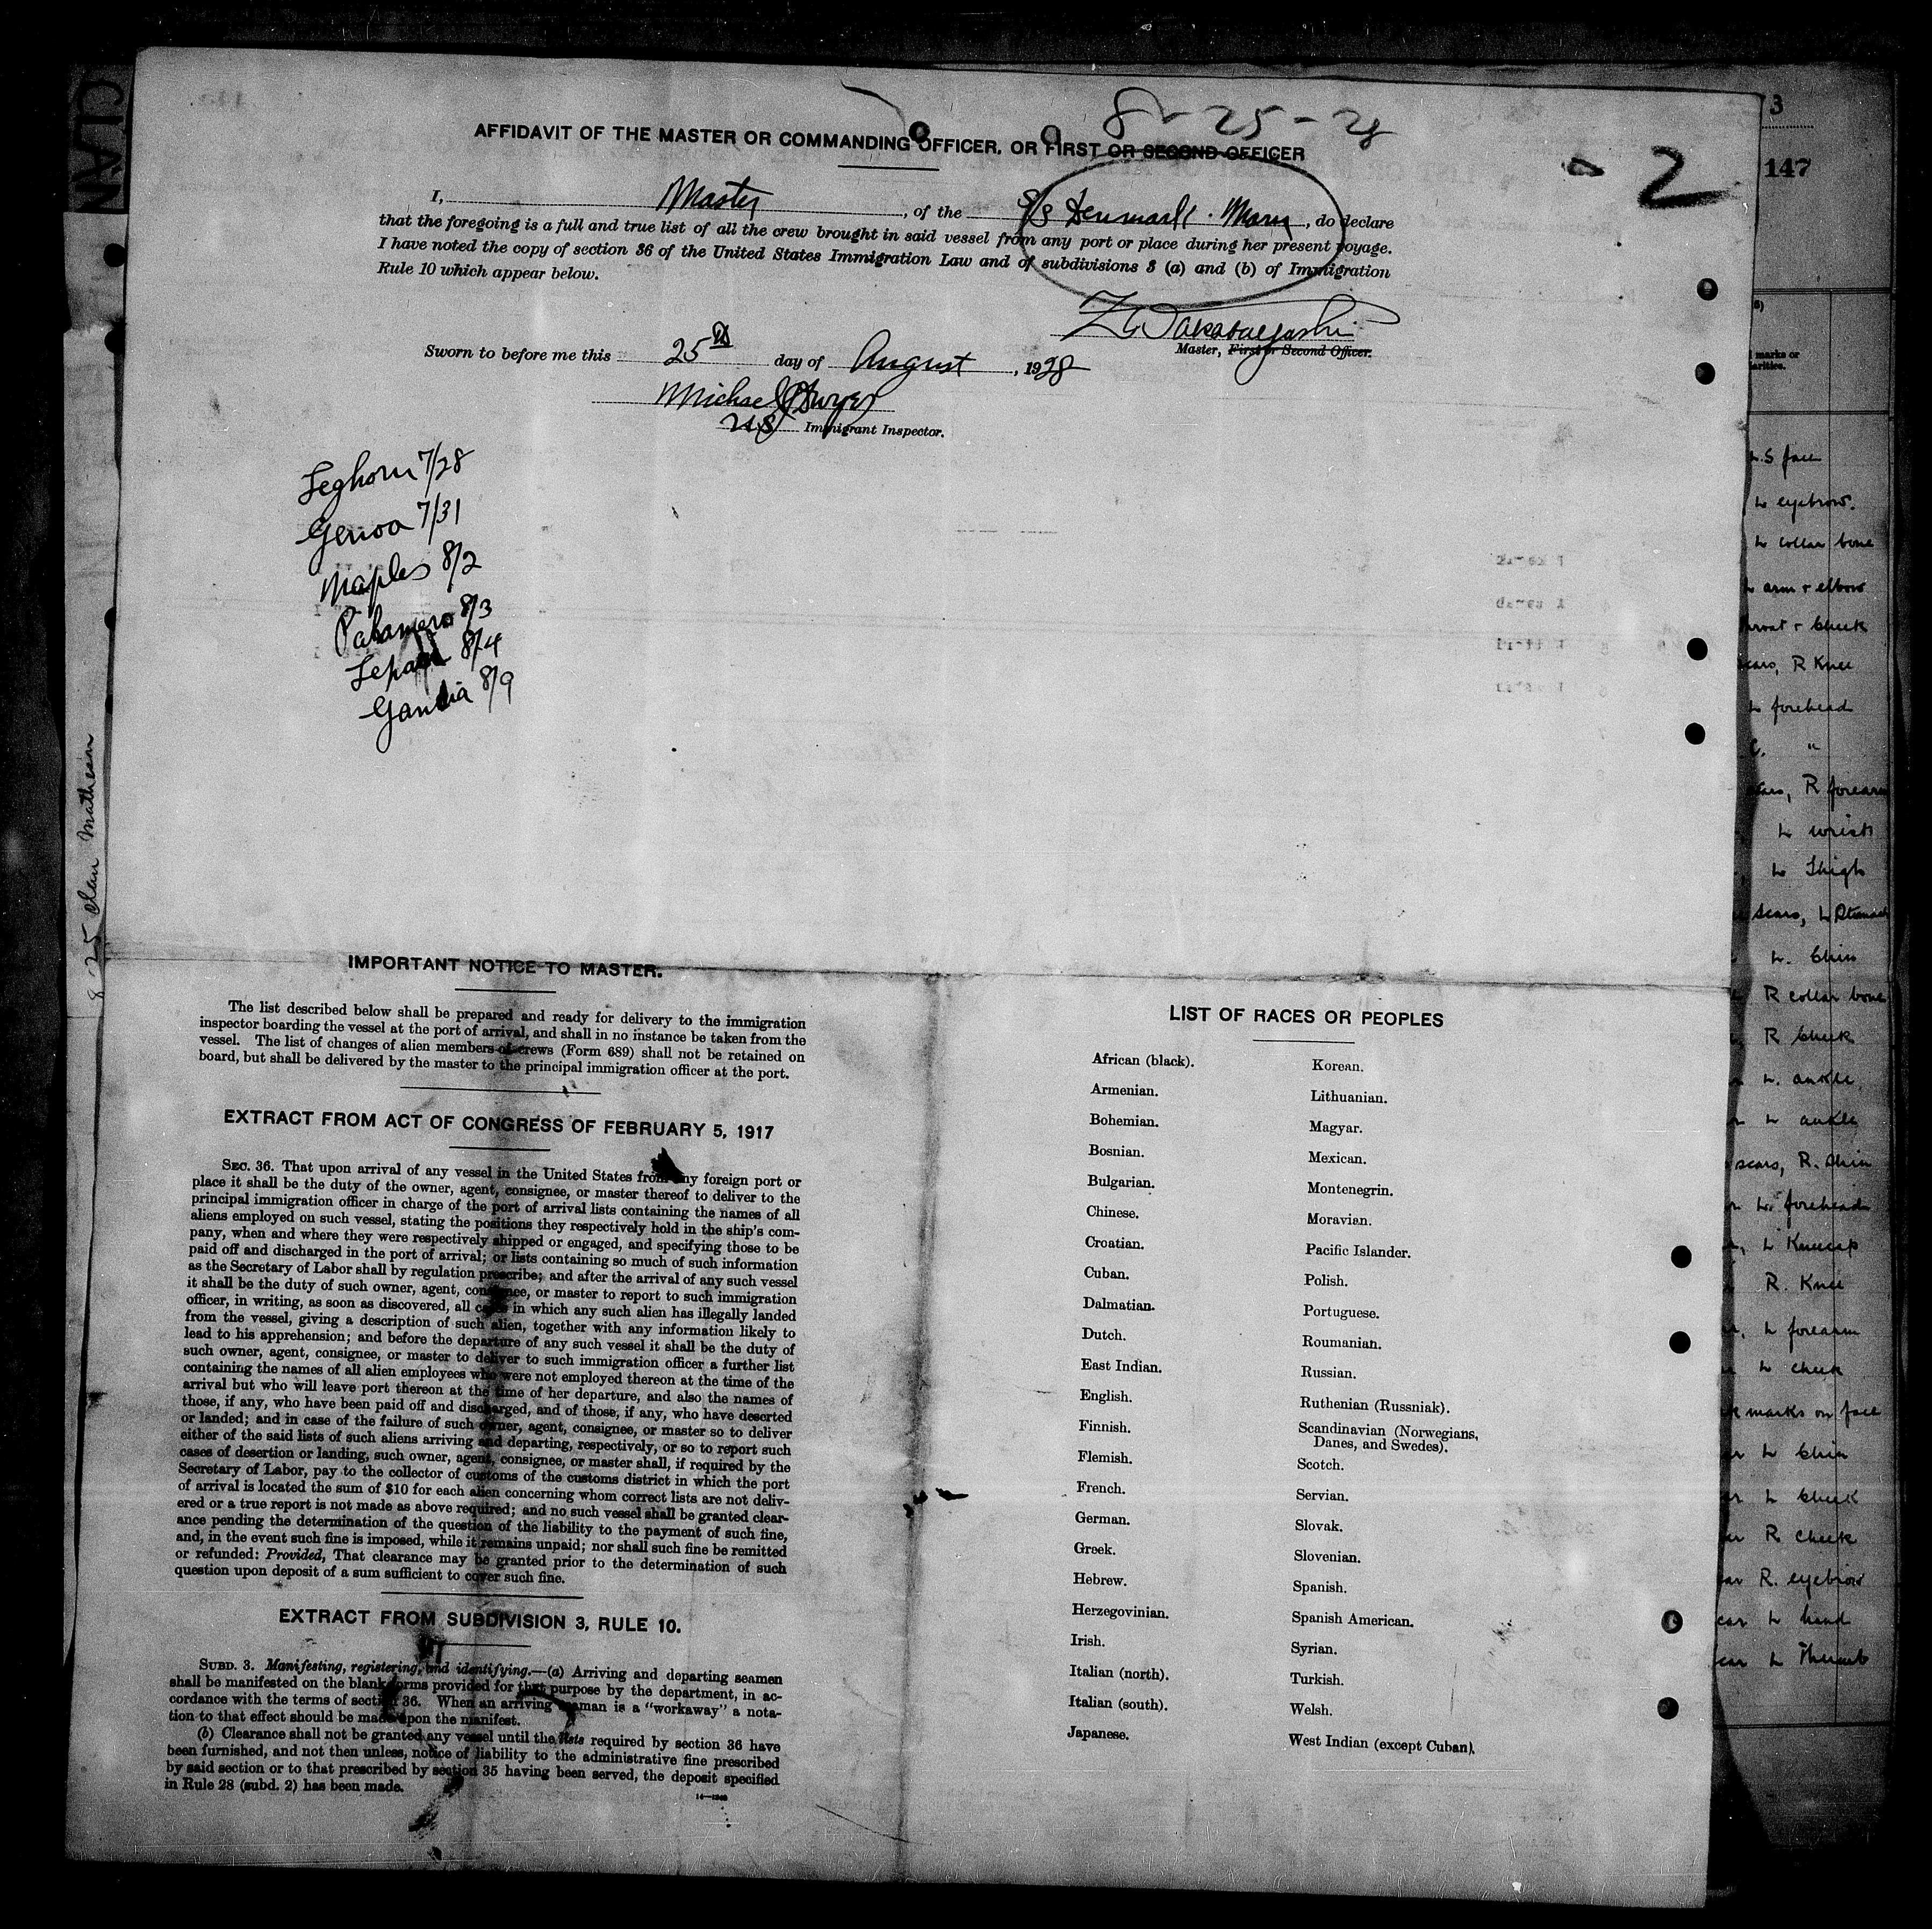 CLAN
8-25 Clan Matheson
8-25-28
AFFIDAVIT OF THE MASTER OR COMMANDING OFFICER, OR FIRST OR SECOND OFFICER
2
3
147
I, Master, of the S/S Denmark Maru, do declare
that the foregoing is a full and true list of all the crew brought in said vessel from any port or place during her present voyage.
I have noted the copy of section 36 of the United States Immigration Law and of subdivisions 3 (a) and (b) of Immigration
Rule 10 which appear below.
Master, First or Second Officer.
Sworn to before me this 25th day of August, 1928
Michael J Dwyer
US Immigrant Inspector.
Leghorn 7/28
Genoa 7/31
Naples 8/2
8/3
8/4
Gandia 8/9
IMPORTANT NOTICE TO MASTER.
The list described below shall be prepared and ready for delivery to the immigration
inspector boarding the vessel at the port of arrival, and shall in no instance be taken from the
vessel. The list of changes of alien members of crews (Form 689) shall not be retained on
board, but shall be delivered by the master to the principal immigration officer at the port.
EXTRACT FROM ACT OF CONGRESS OF FEBRUARY 5, 1917
SEC. 36. That upon arrival of any vessel in the United States from any foreign port or
place it shall be the duty of the owner, agent, consignee, or master thereof to deliver to the
principal immigration officer in charge of the port of arrival lists containing the names of all
aliens employed on such vessel, stating the positions they respectively hold in the ship's com-
pany, when and where they were respectively shipped or engaged, and specifying those to be
paid off and discharged in the port of arrival; or lists containing so much of such information
as the Secretary of Labor shall by regulation prescribe; and after the arrival of any such vessel
it shall be the duty of such owner, agent, consignee, or master to report to such immigration
officer, in writing, as soon as discovered, all cases in which any such alien has illegally landed
from the vessel, giving a description of such alien, together with any information likely to
lead to his apprehension; and before the departure of any such vessel it shall be the duty of
such owner, agent, consignee, or master to deliver to such immigration officer a further list
containing the names of all alien employees who were not employed thereon at the time of the
arrival but who will leave port thereon at the time of her departure, and also the names of
those, if any, who have been paid off and discharged, and of those, if any, who have deserted
or landed; and in case of the failure of such owner, agent, consignee, or master so to deliver
either of the said lists of such aliens arriving and departing, respectively, or so to report such
cases of desertion or landing, such owner, agent, consignee, or master shall, if required by the
Secretary of Labor, pay to the collector of customs of the customs district in which the port
of arrival is located the sum of $10 for each alien concerning whom correct lists are not deliv-
ered or a true report is not made as above required; and no such vessel shall be granted clear-
ance pending the determination of the question of the liability to the payment of such fine,
and, in the event such fine is imposed, while it remains unpaid; nor shall such fine be remitted
or refunded: Provided, That clearance may be granted prior to the determination of such
question upon deposit of a sum sufficient to cover such fine.
EXTRACT FROM SUBDIVISION 3, RULE 10.
SUBD. 3. Manifesting, registering, and identifying.—(a) Arriving and departing seamen
shall be manifested on the blank forms provided for that purpose by the department, in ac-
cordance with the terms of section 36. When an arriving seaman is a "workaway" a nota-
tion to that effect should be made upon the manifest.
(b) Clearance shall not be granted any vessel until the lists required by section 36 have
been furnished, and not then unless, notice of liability to the administrative fine prescribed
by said section or to that prescribed by section 35 having been served, the deposit specified
in Rule 28 (subd. 2) has been made.
LIST OF RACES OR PEOPLES
African (black).
Armenian.
Bohemian.
Bosnian.
Bulgarian.
Chinese.
Croatian.
Cuban.
Dalmatian.
Dutch.
East Indian.
English.
Finnish.
Flemish.
French.
German.
Greek.
Hebrew.
Herzegovinian.
Irish.
Italian (north).
Italian (south).
Japanese.
Korean.
Lithuanian.
Magyar.
Mexican.
Montenegrin.
Moravian.
Pacific Islander.
Polish.
Portuguese.
Roumanian.
Russian.
Ruthenian (Russniak).
Scandinavian (Norwegians,
Danes, and Swedes).
Scotch.
Servian.
Slovak.
Slovenian.
Spanish.
Spanish American.
Syrian.
Turkish.
Welsh.
West Indian (except Cuban).
marks or
L.S face
L eyebrow.
L collar bone
L arm + elbow
throat + cheek
scars, R Knee
L forehead
"
scars, R forearm
L wrist
L Thigh
scars, L Stomach
L. Chin
R collar bone
R Cheek
L. ankle.
L ankle
scars, R. Chin
L. forehead
L Kneecap
R. Knee
L forearm
L cheek
marks on face
L Chin
L Cheek
R cheek
R. eyebrow
L hand
L Thumb